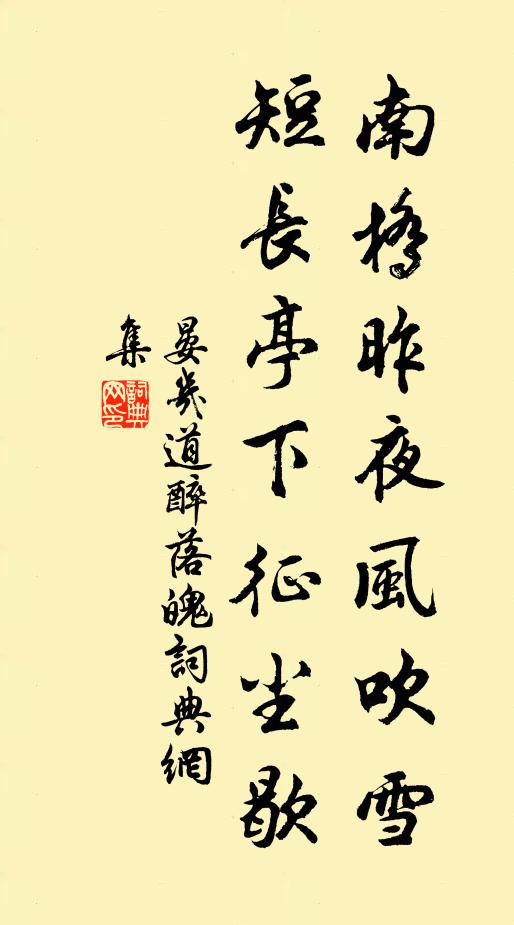 南橋昨夜風吹雪
短長亭下征尘歇
晏幾道醉落魄詞典網
集
詞典
网印